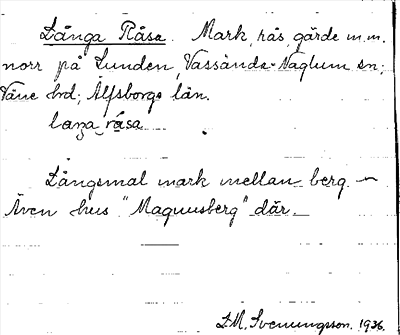 Långa Råsa. Mark, rås, gärde m.m.
norr på Lunden, Vassända-Naglum sn;
Väne hd; Älfsborgs län.
laŋa råsa
Långsmal mark mellan berg. –
Även hus "Magnusberg" där. –
D.M. Svenungsson. 1936.